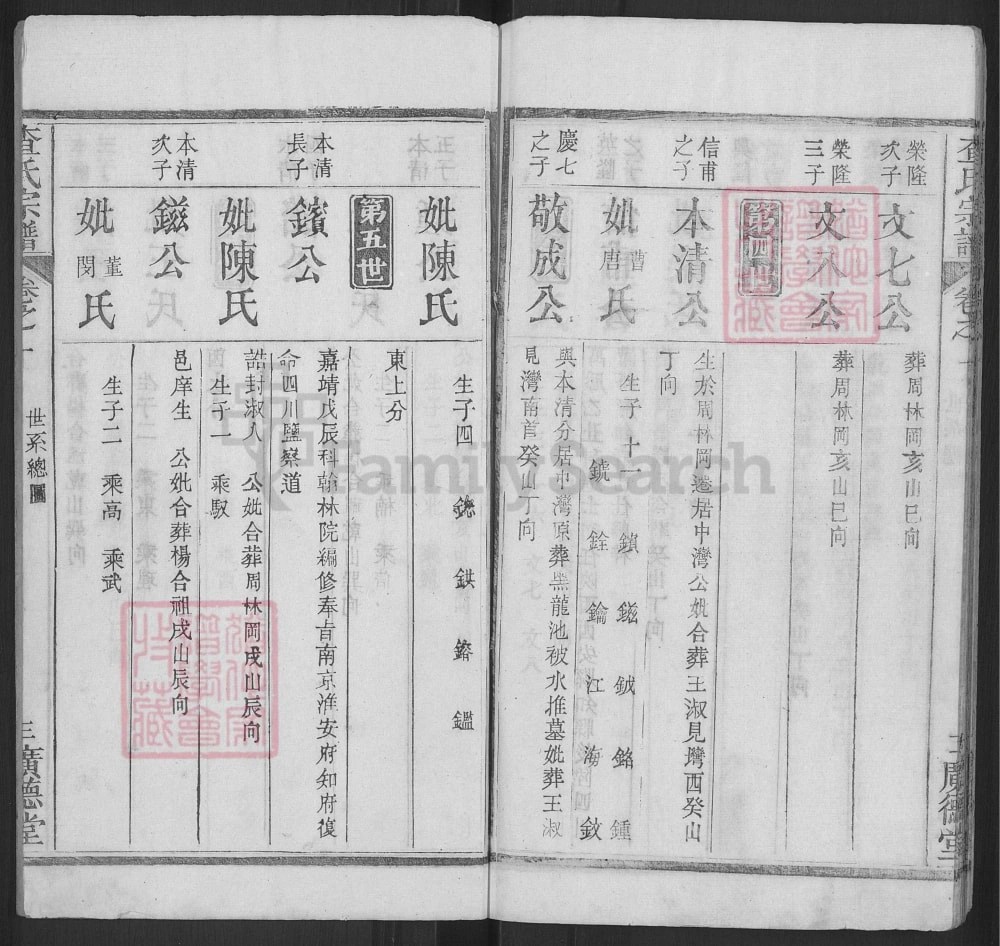 查氏宗譜 卷之一
廣德堂
榮隆
次子
文七公
葬周林岡亥山巳向
榮隆
三子
文八公
葬周林岡亥山巳向
第四世
信甫
之子
本清公
生於周林岡遷居中灣公妣合葬王淑見灣西癸山
丁向
妣曹唐氏
生子十一
鎖 鎡 鉞 銘 鍾
銓 鑰 江 海 釹
慶七
之子
敬成公
與本清分居中灣原葬黑龍池被水推墓妣葬王淑
見灣南首癸山丁向
妣陳氏
生子四 鏓 鉷 鏛 鑑
東上分
第五世
本清
長子
鑌公
嘉靖戊辰科翰林院編修奉旨南京淮安府知府復
命四川鹽察道
妣陳氏
誥封淑人 公妣合葬周林岡戌山辰向
生子一 乘馭
本清
次子
鎡公
邑庠生 公妣合葬楊合祖戌山辰向
妣董閔氏
生子二 乘高 乘武
查氏宗譜
卷之一
世系總圖
三
廣德堂
FamilySearch